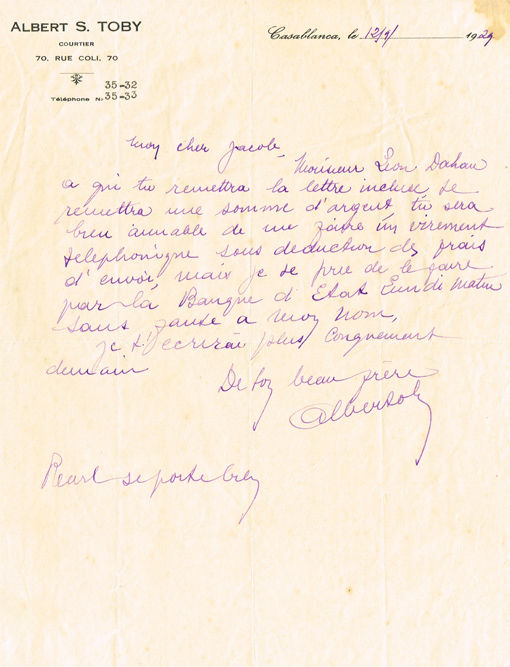 ALBERT S. TOBY
COURTIER
70, RUE COLI, 70
35-32
Téléphone N: 35-33
Casablanca, le 12/9/ 1929
Mon cher Jacob,
Monsieur Leon Dahan
a qui tu remettra la lettre incluse te
remettra une somme d'argent tu sera
bien aimable de me faire un virement
telephonique sous deduction des frais
d'envoi, mais je te prie de le faire
par la Banque d'Etat Lundi Matin
sans faute a mon nom,
je t'ecrirai plus longuement
demain
De ton beau frère
Pearl se porte bien